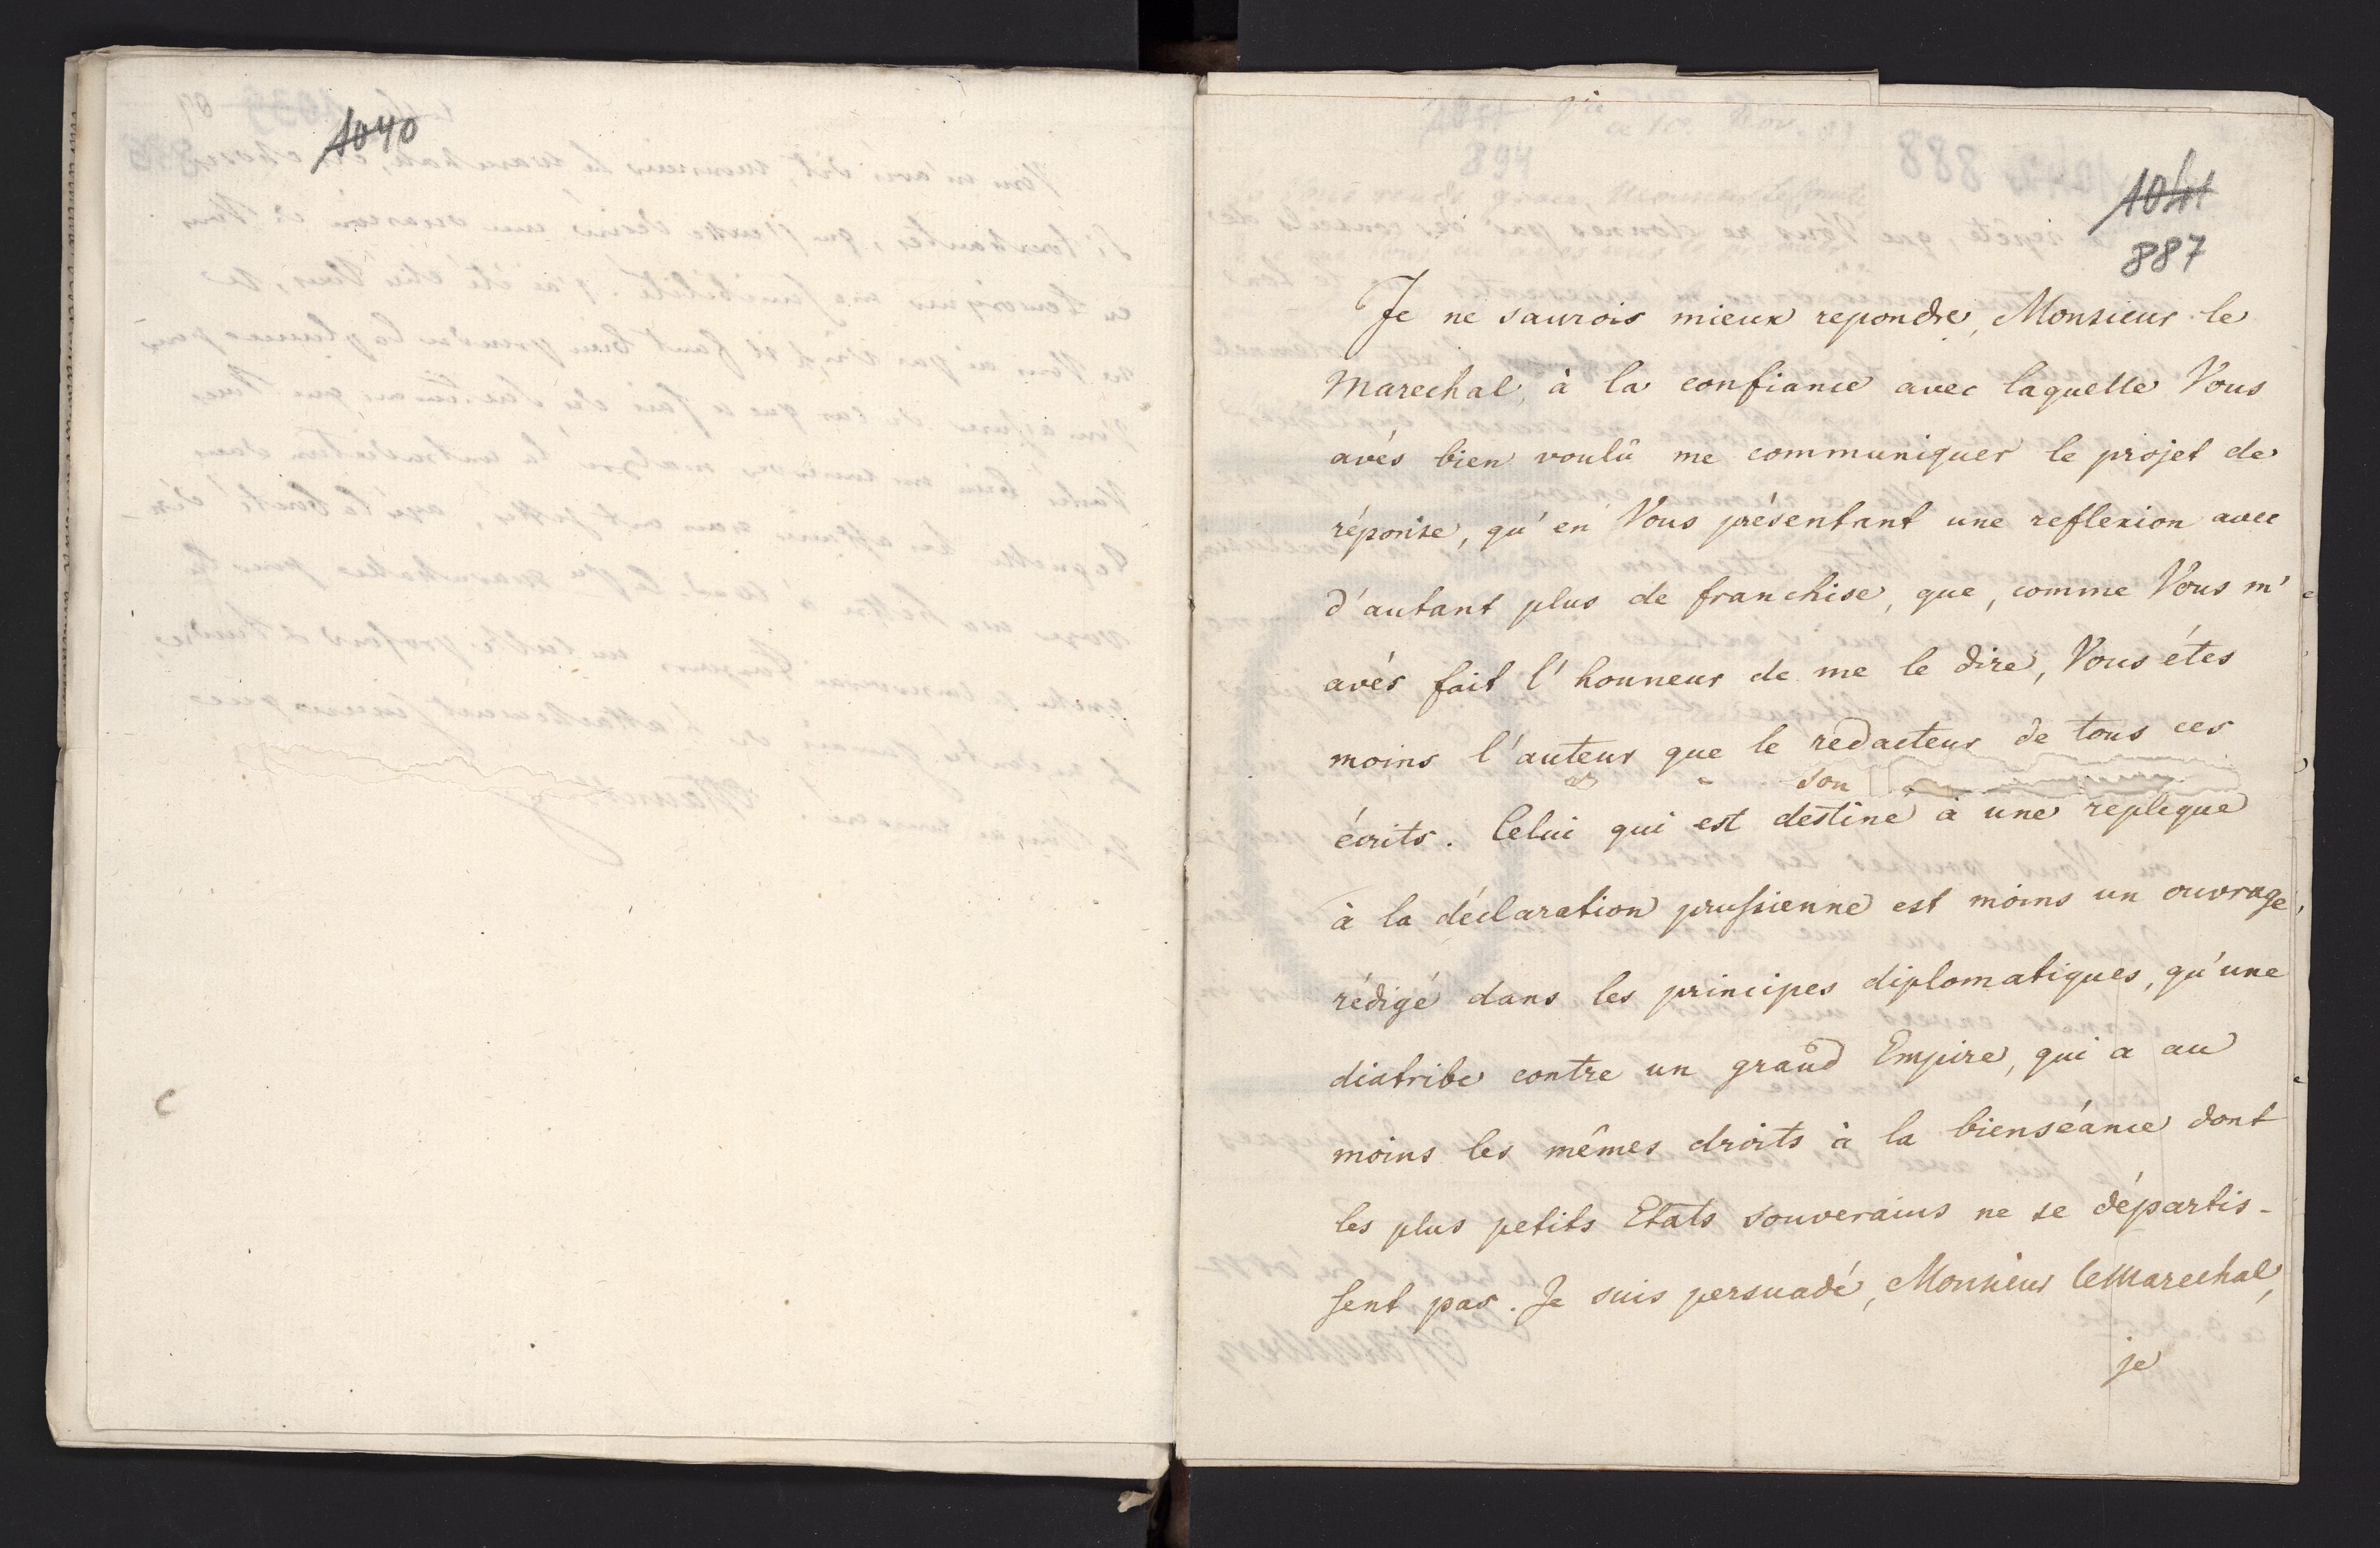 1040
1041
887
Je ne saurois mieux repondre, Monsieur le
Marechal, à la confiance avec laquelle Vous
avés bien voulû me communiquer le projet de
réponse, qu'en Vous présentant une reflexion avec
d'autant plus de franchise, que, comme Vous m'
avés fait l'honneur de me le dire, Vous étes
moins l'auteur que le redacteur de tous ces
écrits. Celui qui est destiné à une replique
à la déclaration prussienne est moins un ouvrage,
rédigé dans les principes diplomatiques, qu'une
diatribe contre un grand Empire, qui a au
moins les mêmes droits à la bienséance dont
les plus petits Etats souverains ne se départis-
sent pas. Je suis persuadé, Monsieur le Marechal,
je